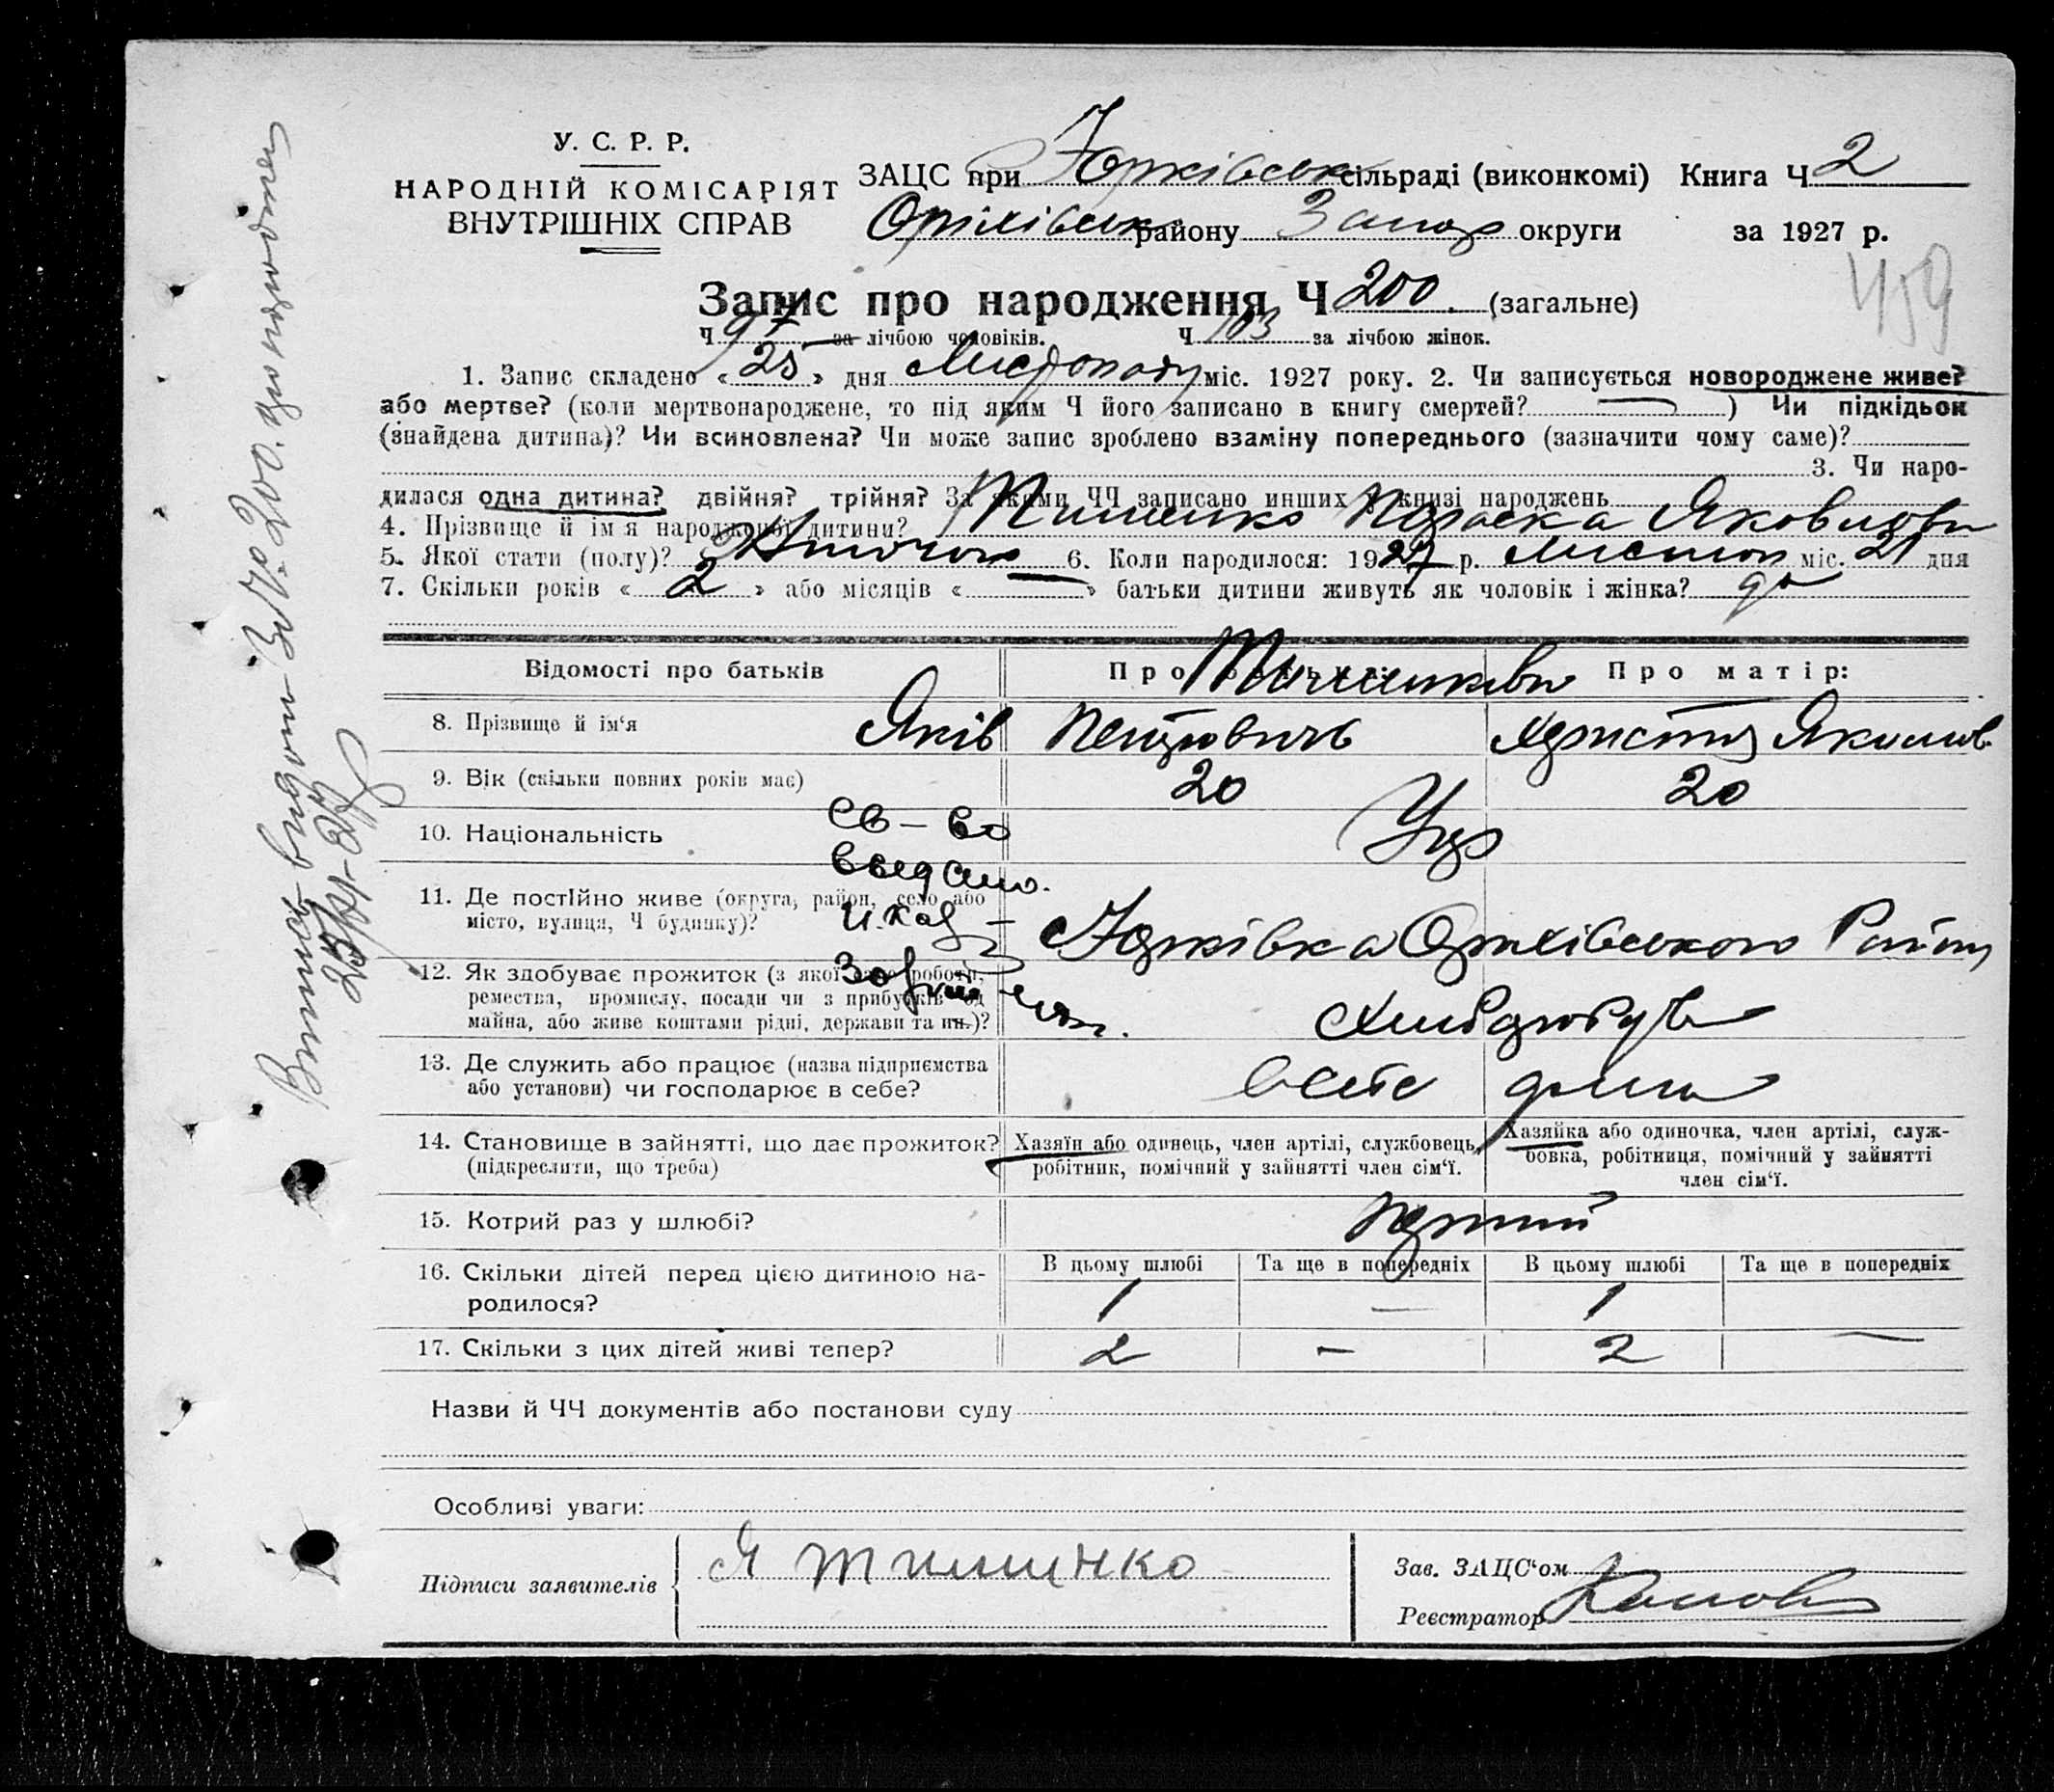 У. С. Р. Р.
НАРОДНІЙ КОМІСАРІЯТ
ВНУТРІШНІХ СПРАВ
ЗАЦС при Юрківськ сільраді (виконкомі) Книга Ч 2
Оріхівськ району Запор округи за 1927 р.
459
Запис про народження Ч 200. (загальне)
Ч 97 за лічбою чоловіків. Ч 103 за лічбою жінок.
1. Запис складено « 25 » дня Листопаду міс. 1927 року. 2. Чи записується новороджене живе?
або мертве? (коли мертвонароджене, то під яким Ч його записано в книгу смертей? — ) Чи підкідьок
(знайдена дитина)? Чи всиновлена? Чи може запис зроблено взаміну попереднього (зазначити чому саме)?
3. Чи наро-
дилася одна дитина? двійня? трійня? За якими ЧЧ записано инших у книзі народжень
4. Прізвище й ім'я народженої дитини? Тишенко Параска Яковлівн
5. Якої стати (полу)? Жіночої 6. Коли народилося: 1927 р. Листоп міс. 21 дня
7. Скільки років « 2 » або місяців « — » батьки дитини живуть як чоловік і жінка?
Відомості про батьків Про Про матір:
8. Прізвище й ім'я Яків Петрович Христя Якимів
9. Вік (скільки повних років має) 20 20
10. Національність Укр
св-во
выдано.
11. Де постійно живе (округа, район, село або
місто, вулиця, Ч будинку)? Юрківка Оріхівського Району
12. Як здобуває прожиток (з якої саме роботи,
ремества, промислу, посади чи з прибутків од
майна, або живе коштами рідні, держави та ин.)? Хліборобує
13. Де служить або працює (назва підприємства
або установи) чи господарює в себе?
14. Становище в зайнятті, що дає прожиток?
(підкреслити, що треба)
Хазяїн або одинець, член артілі, службовець,
робітник, помічний у зайнятті член сім'ї.
Хазяйка або одиночка, член артілі, служ-
бовка, робітниця, помічний у зайнятті
член сім'ї.
15. Котрий раз у шлюбі? перший
В цьому шлюбі Та ще в попередніх В цьому шлюбі Та ще в попередніх
16. Скільки дітей перед цією дитиною на-
родилося? 1 — 1
17. Скільки з цих дітей живі тепер? 2 — 2 —
Назви й ЧЧ документів або постанови суду
Особливі уваги:
Підписи заявителів Я Тишинко
Зав. ЗАЦС'ом
Реєстратор